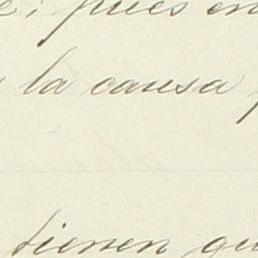 ; pues en
la causa
tienen qu